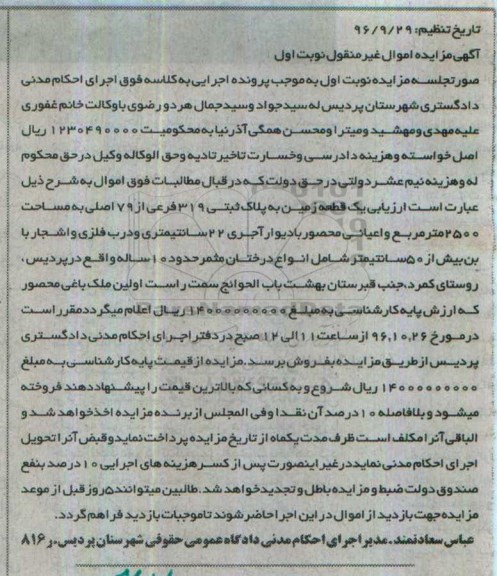 تاریخ تنظیم: ۹۶/۹/۲۹
آگهی مزایده اموال غیرمنقول نوبت اول
صورتجلسه مزایده نوبت اول به موجب پرونده اجرایی به کلاسه فوق اجرای احکام مدنی
دادگستری شهرستان پردیس له سیدجواد و سیدجمال هر دو رضوی با وکالت خانم غفوری
علیه مهدی و مهشید و میترا و محسن همگی آذرنیا به محکومیت ۱۲۳۰۴۹۰۰۰۰ ریال
اصل خواسته و هزینه دادرسی و خسارت تاخیر تادیه و حق الوکاله وکیل در حق محکوم
له و هزینه نیم عشر دولتی در حق دولت که در قبال مطالبات فوق اموال به شرح ذیل
عبارت است ارزیابی یک قطعه زمین به پلاک ثبتی ۳۱۹ فرعی از ۷۹ اصلی به مساحت
۲۵۰۰ مترمربع و اعیانی محصور با دیوار آجری ۲۲ سانتیمتری و درب فلزی و اشجار با
بن بیش از ۵۰ سانتیمتر شامل انواع درختان مثمر حدود ۱۰ ساله واقع در پردیس ،
روستای کمرد، جنب قبرستان بهشت باب الحوائج سمت راست اولین ملک باغی محصور
که ارزش پایه کارشناسی به مبلغ ۱۴۰۰۰۰۰۰۰۰۰ ریال اعلام میگردد مقرر است
در مورخ ۹۶,۱۰,۲۶ از ساعت ۱۱ الی ۱۲ صبح در دفتر اجرای احکام مدنی دادگستری
پردیس از طریق مزایده بفروش برسد. مزایده از قیمت پایه کارشناسی به مبلغ
۱۴۰۰۰۰۰۰۰۰۰ ریال شروع و به کسانی که بالاترین قیمت را پیشنهاد دهند فروخته
میشود و بلافاصله ۱۰ درصد آن نقدا و فی المجلس از برنده مزایده اخذ خواهد شد و
الباقی آنرا مکلف است ظرف مدت یکماه از تاریخ مزایده پرداخت نماید و قبض آنرا تحویل
اجرای احکام مدنی نماید در غیر اینصورت پس از کسر هزینه های اجرایی ۱۰ درصد بنفع
صندوق دولت ضبط و مزایده باطل و تجدید خواهد شد. طالبین میتوانند ۵ روز قبل از موعد
مزایده جهت بازدید از اموال در این اجرا حاضر شوند تا موجبات بازدید فراهم گردد.
عباس سعادتمند . مدیر اجرای احکام مدنی دادگاه عمومی حقوقی شهرستان پردیس. ر ۸۱۶